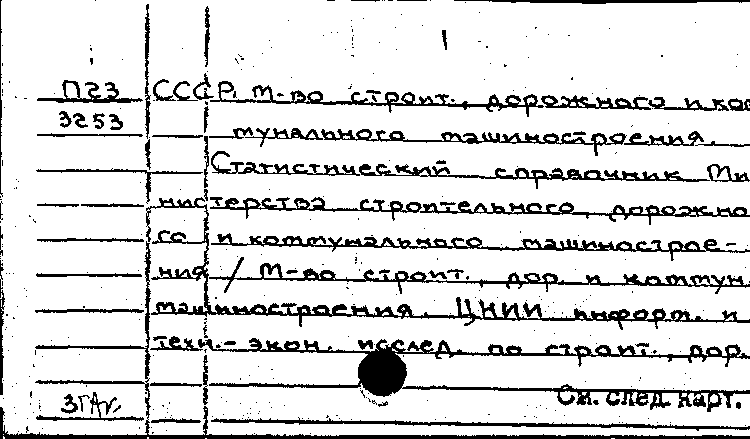 П23 СССР. М-во строит., дорожного и ком
3253 мунального машиностроения.
Статистический справочник Ми
нистерства строительного, дорожно
го и коммунального машинострое-
ния / М-во строит., дор. и коммун.
машиностроения. ЦНИИ информ. и
техн.-экон. исслед. по строит., дор.
См. след. карт.